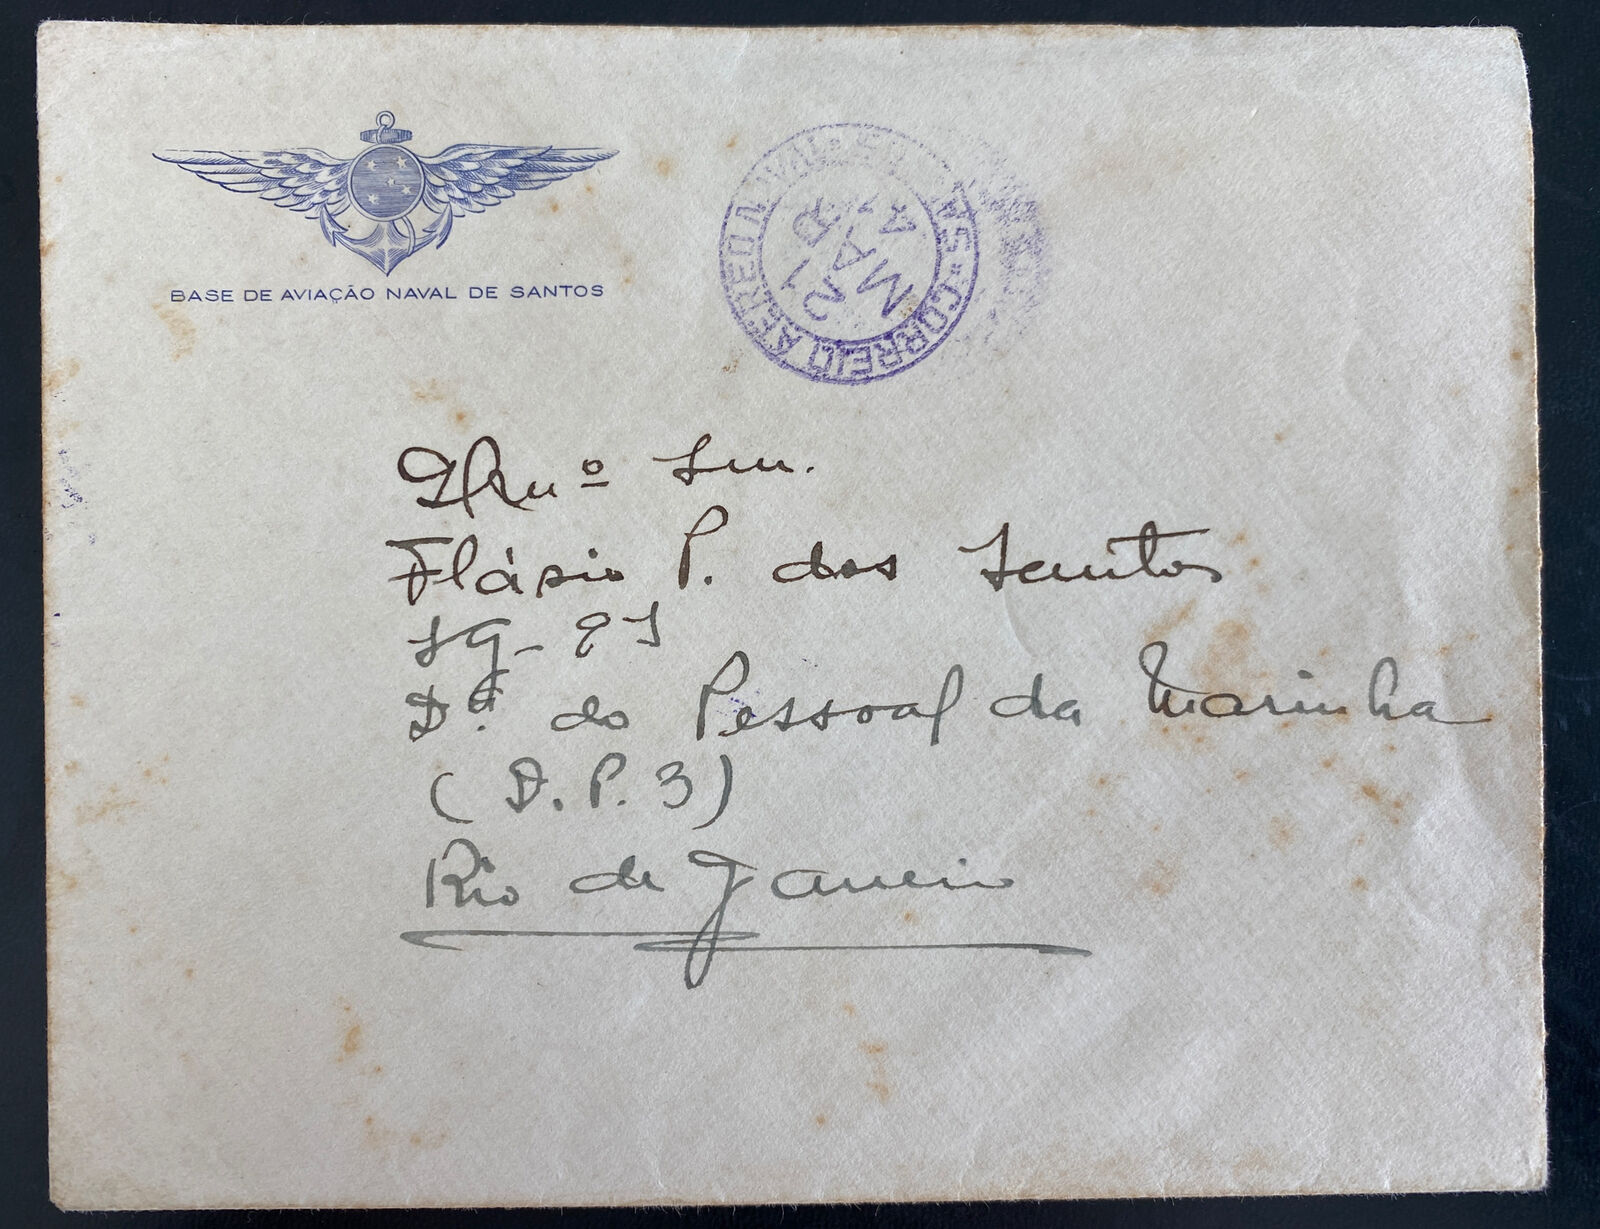 BASE DE AVIAÇÃO NAVAL DE SANTOS
CORREIO AÉREO NAVAL
21
MAR
A
Ilmº Snr.
Flávio P. dos Santos
SG-
Dª do Pessoal da Marinha
(D.P.3)
Rio de Janeiro